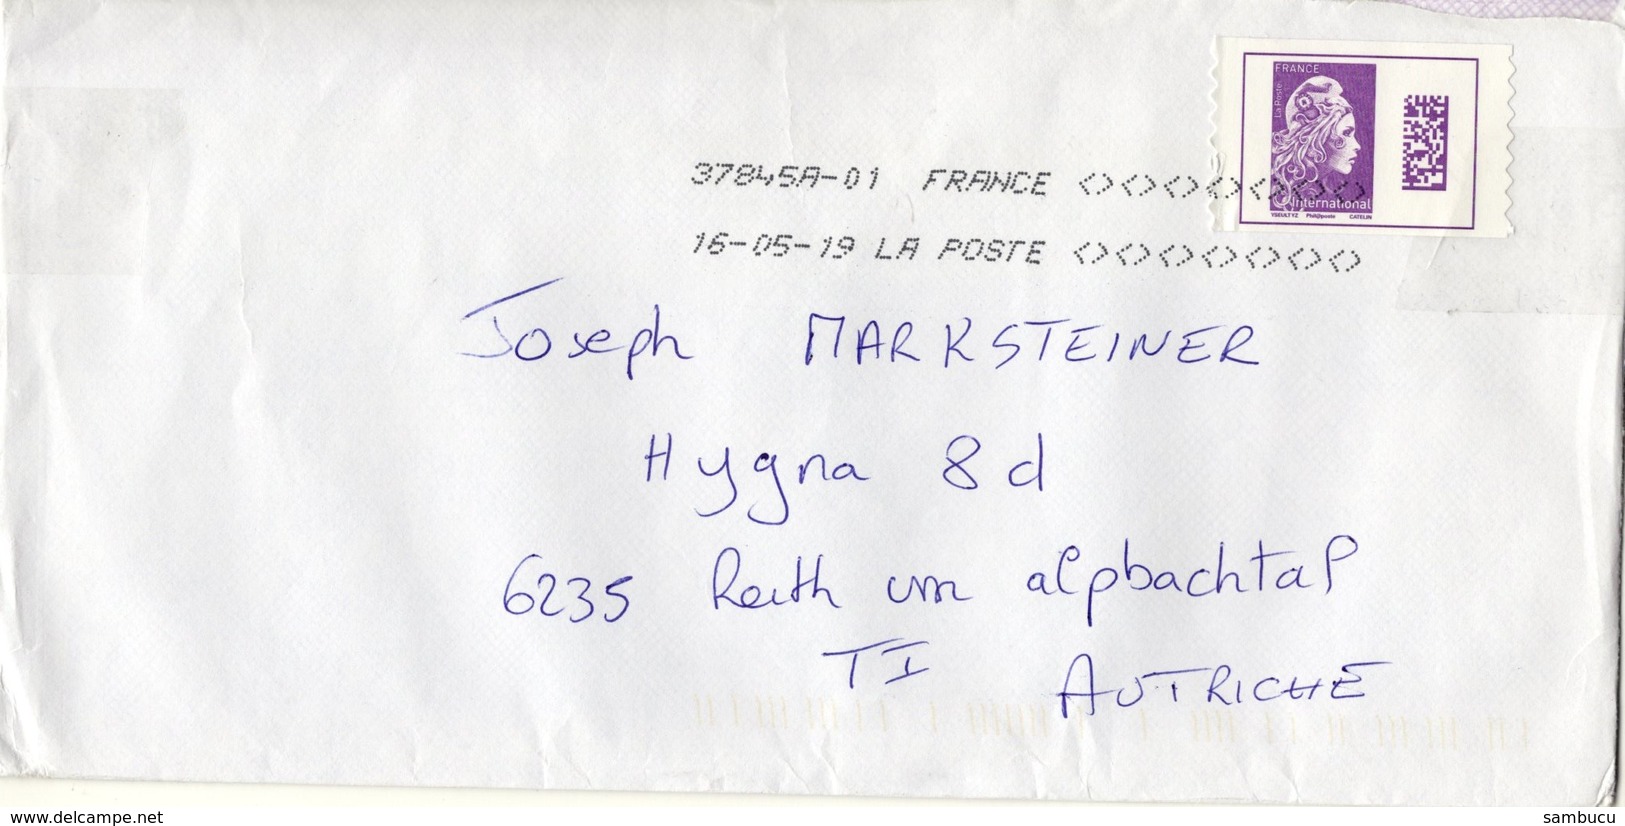 FRANCE
La Poste
International
YSEULTYZ Phil@poste CATELIN
37845A-01 FRANCE
16-05-19 LA POSTE
Joseph MARKSTEINER
Hygna 8d
6235 Reith im alpbachtal
TI
AUTRICHE
www.delcampe.net
sambucu